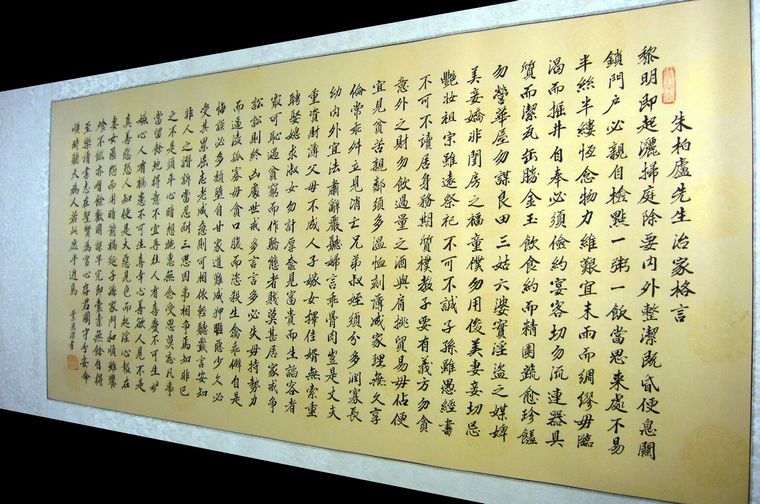 朱柏廬先生治家格言
黎明即起灑掃庭除要內外整潔既昏便息關
鎖門戶必親自檢點一粥一飯當思來處不易
半絲半縷恆念物力維艱宜未雨而綢繆毋臨
渴而掘井自奉必須儉約宴客切勿流連器具
質而潔瓦缶勝金玉飲食約而精園蔬愈珍饈
勿營華屋勿謀良田三姑六婆實淫盜之媒婢
美妾嬌非閨房之福童僕勿用俊美妻妾切忌
艷妝祖宗雖遠祭祀不可不誠子孫雖愚經書
不可不讀居身務期質樸教子要有義方勿貪
意外之財勿飲過量之酒與肩挑貿易毋佔便
宜見貧苦親鄰須多溫恤刻薄成家理無久享
倫常乖舛立見消亡兄弟叔姪須分多潤寡長
幼內外宜法肅辭嚴聽婦言乖骨肉豈是丈夫
重資財薄父母不成人子嫁女擇佳婿無索重
聘娶媳求淑女勿計厚奩見富貴而生諂容者
最可恥遇貧窮而作驕態者賤莫甚居家戒爭
訟訟則終凶處世戒多言言多必失毋恃勢力
而凌逼孤寡毋貪口腹而恣殺生禽乖僻自是
悔誤必多頹墮自甘家道難成狎暱惡少久必
受其累屈志老成急則可相依輕聽發言安知
非人之譖訴當忍耐三思因事相爭焉知非己
之不是須平心暗想施惠無念受恩莫忘凡事
當留餘地得意不宜再往人有喜慶不可生妒
嫉心人有禍患不可生喜幸心善欲人見不是
真善惡恐人知便是大惡見色而起淫心報在
妻女匿怨而用暗箭禍延子孫家門和順雖饔
飧不繼亦有餘歡國課早完即囊橐無餘自得
至樂讀書志在聖賢為官心存君國守分安命
順時聽天為人若此庶乎近焉